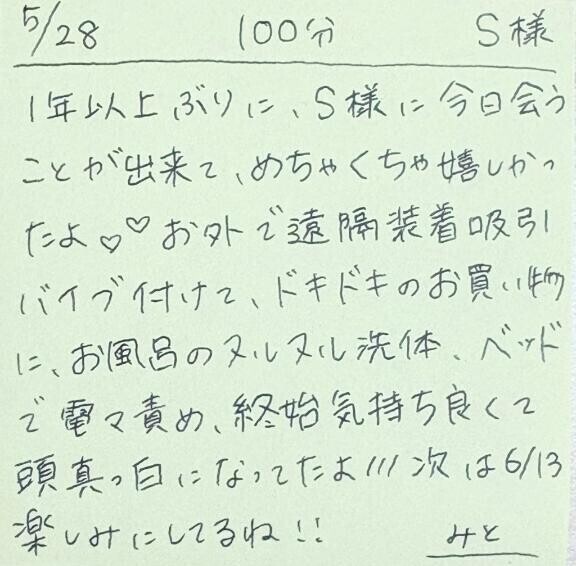 5/28 100分 S様
1年以上ぶりに、S様に今日会う
ことが出来て、めちゃくちゃ嬉しかっ
たよ♡♡お外で遠隔装着吸引
バイブ付けて、ドキドキのお買い物
に、お風呂のヌルヌル洗体、ベッド
で電マ責め、終始気持ち良くて
頭真っ白になってたよ///次は6/13
楽しみにしてるね!! みと